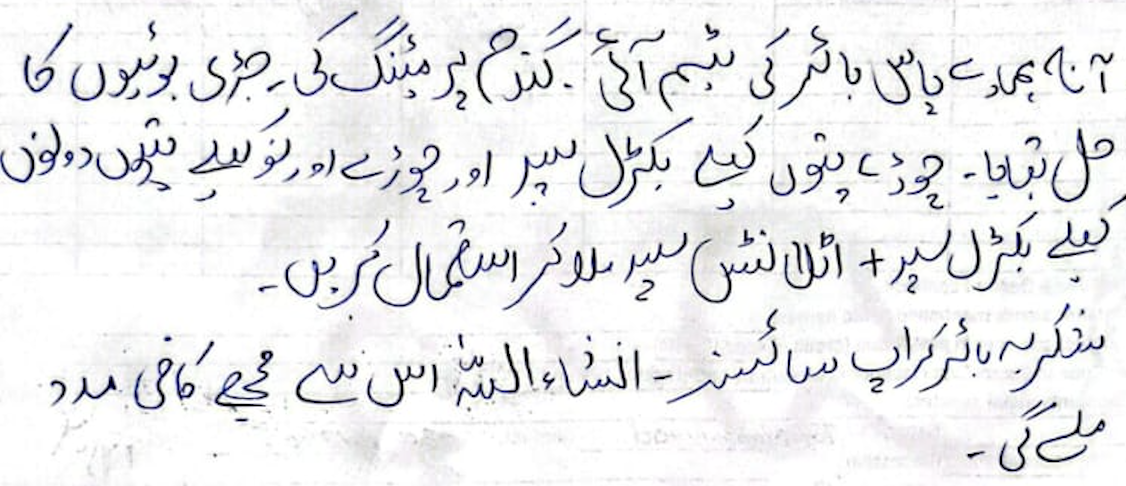 آج ہمارے پاس بائر کی ٹیم آئی۔ گندم پر میٹنگ کی۔ جڑی بوٹیوں کا
حل بتایا۔ چوڑے پتوں کیلے بکٹرل سپر اور چوڑے اور نوکیلے پتوں دونوں
کیلے بکٹرل سپر + اٹلانٹس سپر ملا کر استعمال کریں۔
شکریہ بائر کراپ سائنسز۔ انشاءاللہ اس سے مجھے کافی مدد
ملے گی۔